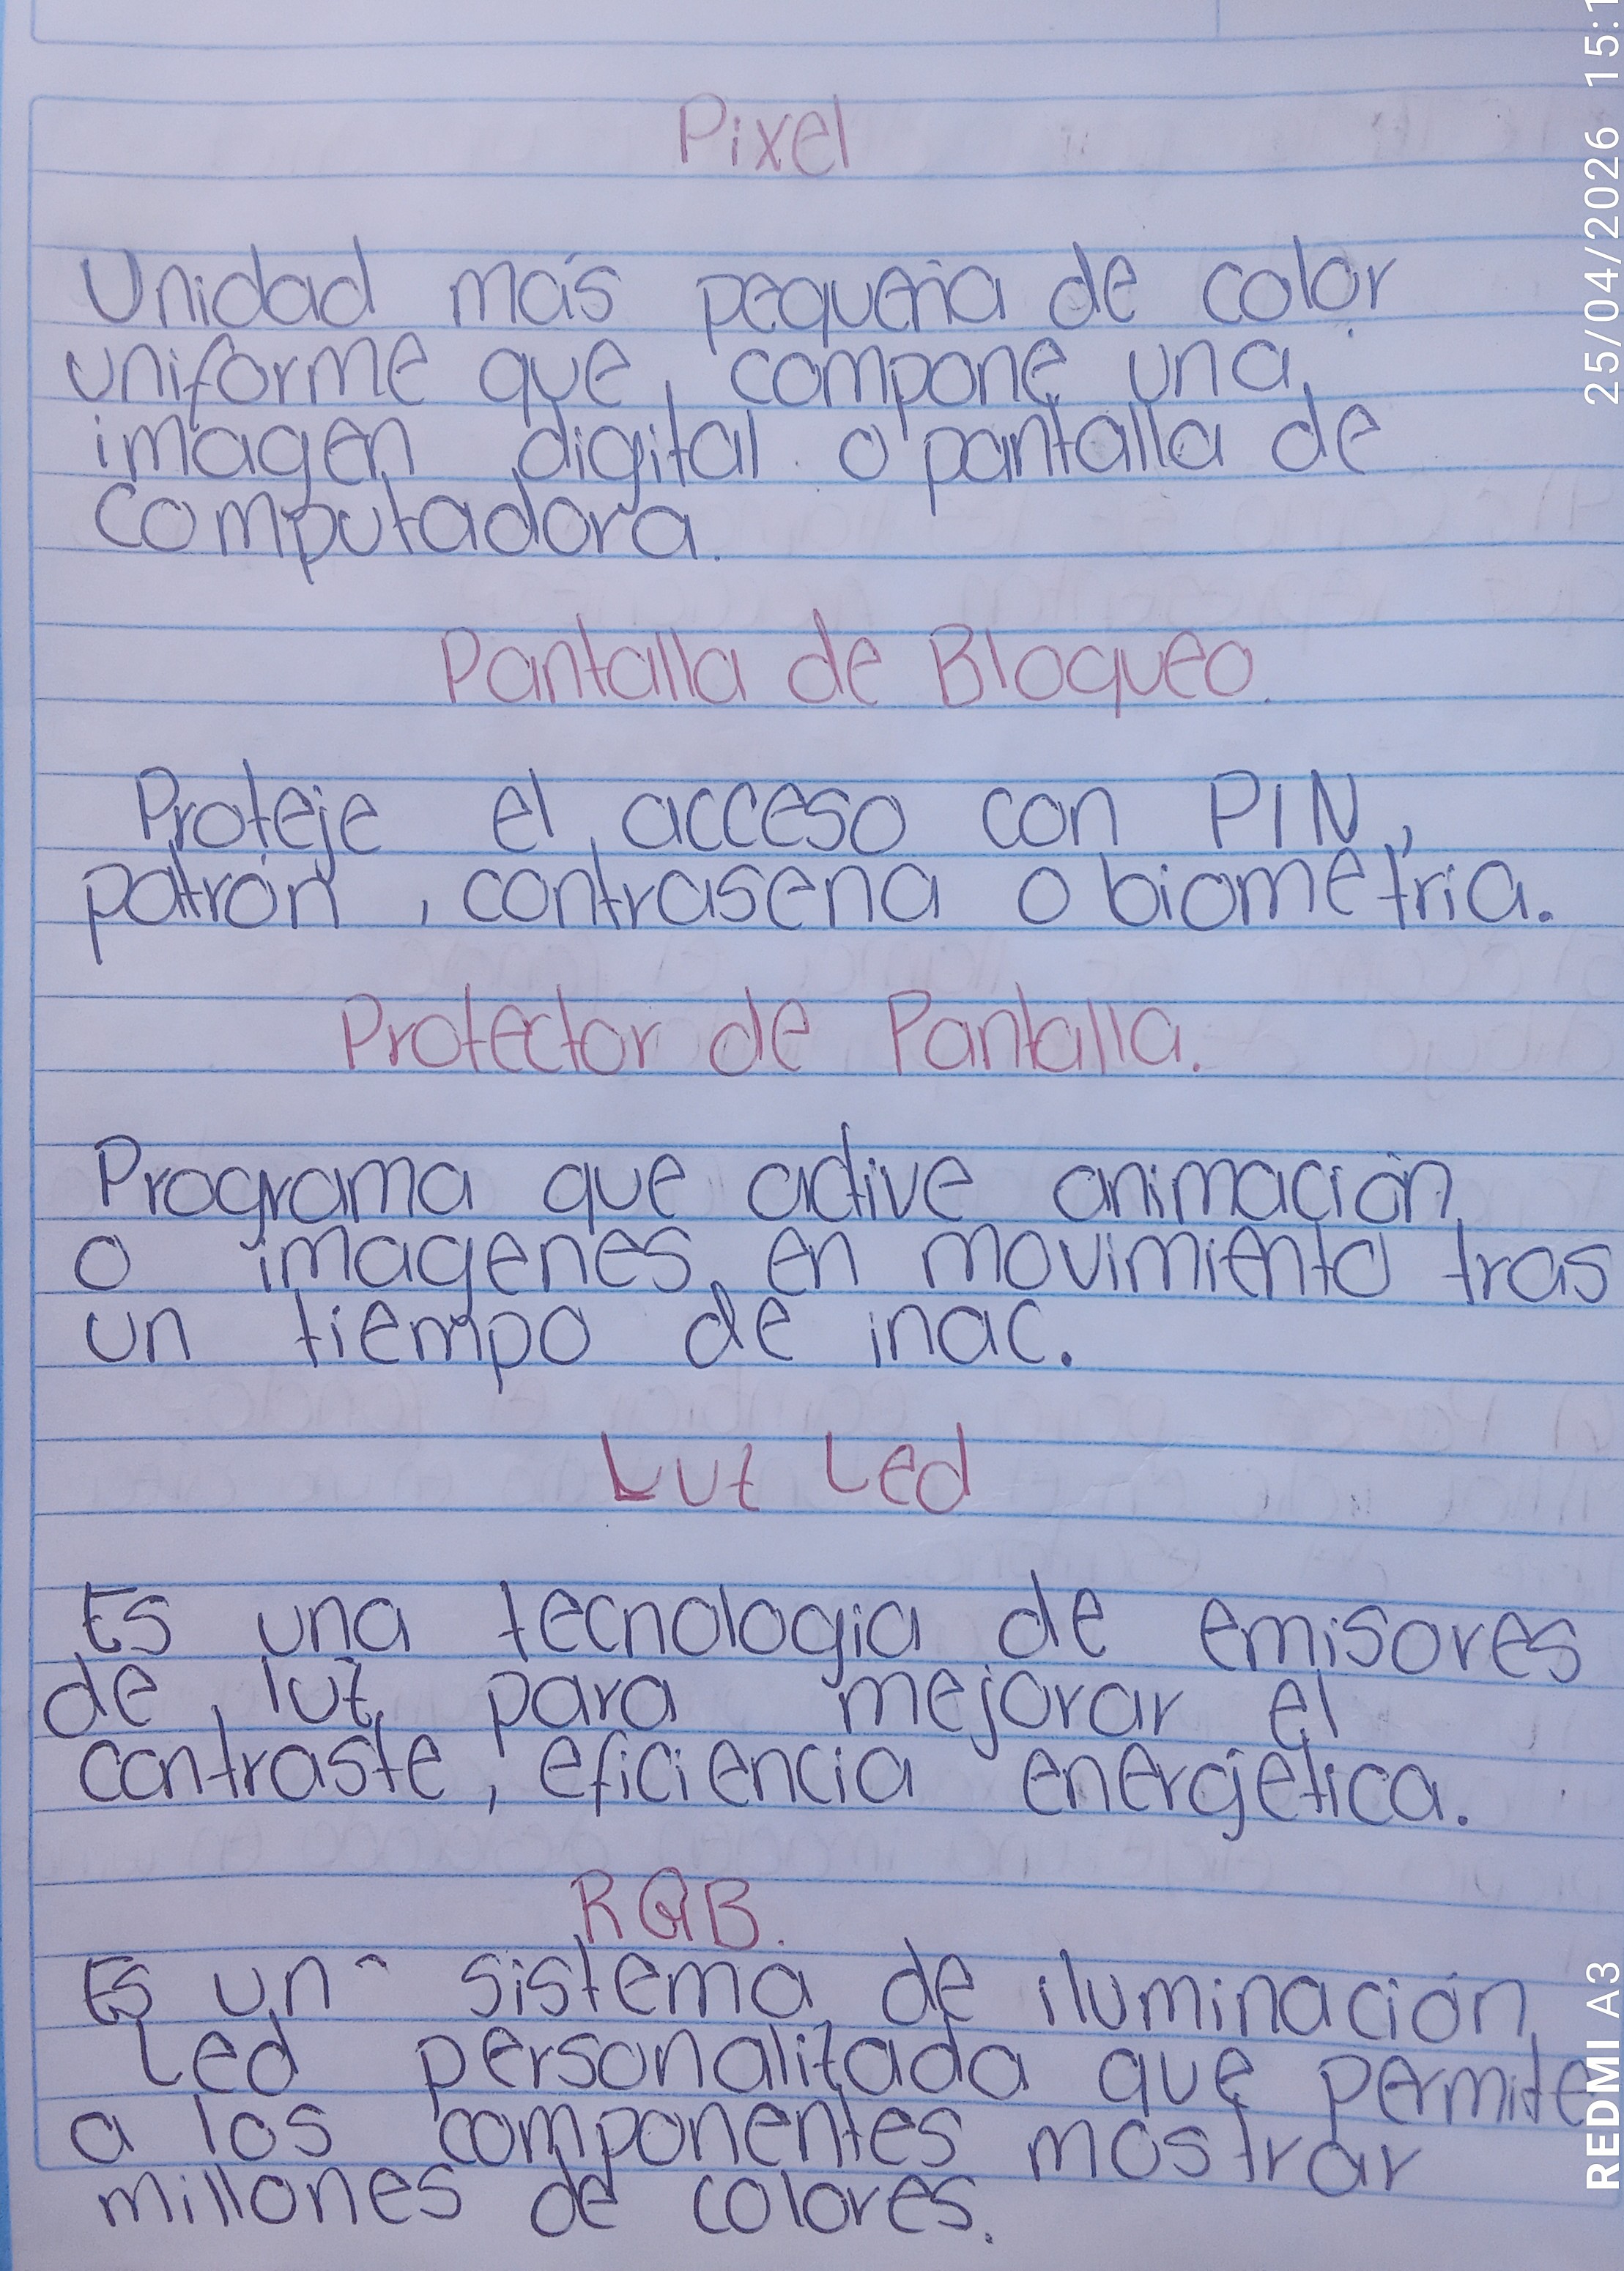 Pixel
Unidad más pequeña de color
uniforme que compone una
imagen digital o pantalla de
computadora.
Pantalla de Bloqueo.
Proteje el acceso con PIN,
patrón, contrasena o biometria.
Protector de Pantalla.
Programa que active animación
o imagenes en movimiento tras
un tiempo de inac.
Luz Led
Es una tecnologia de emisores
de luz para mejorar el
contraste, eficiencia energética.
RGB.
Es un sistema de iluminación
Led personalizada que permite
a los componentes mostrar
millones de colores.
25/04/2026 15:1
REDMI A3